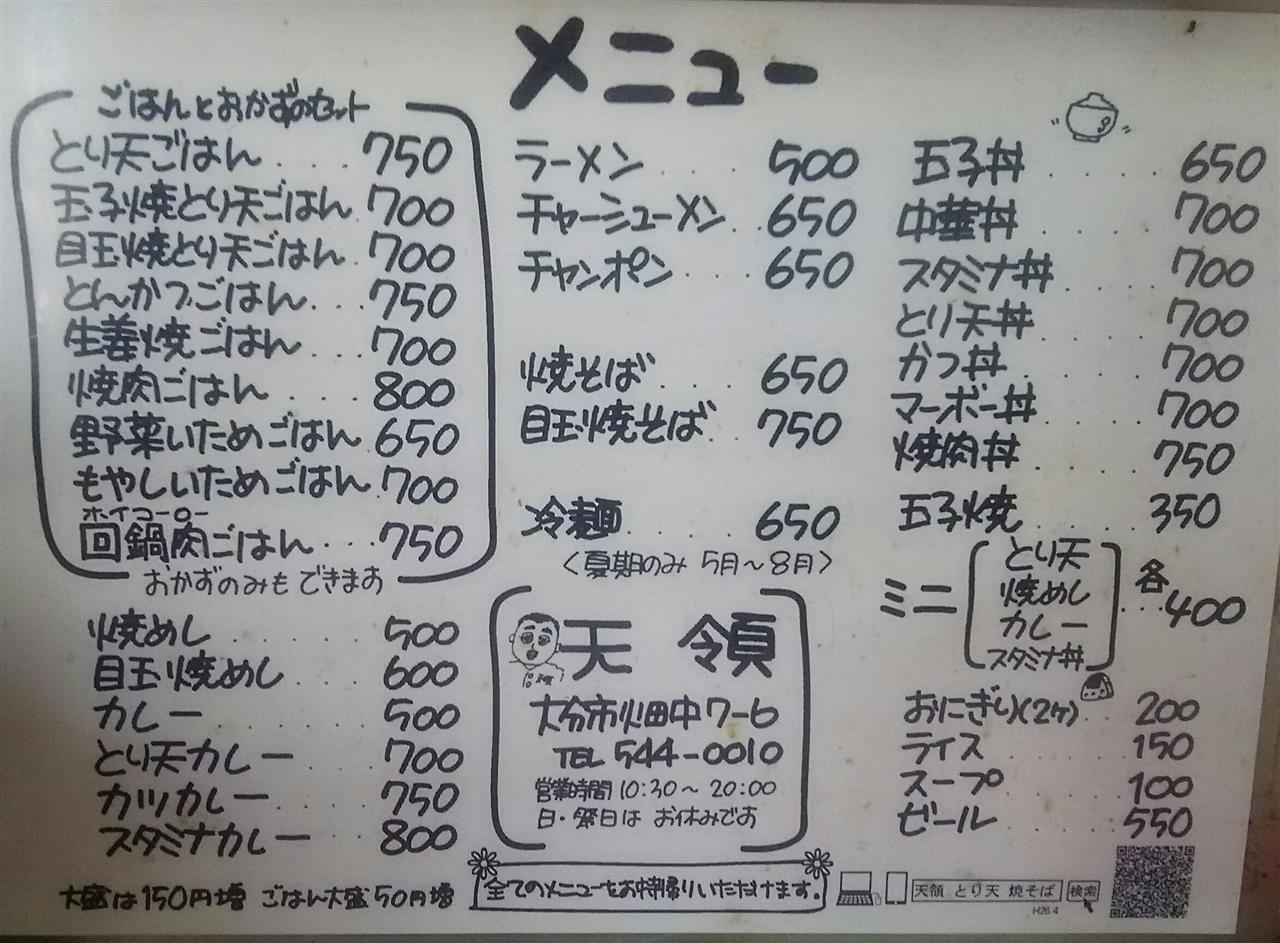 メニュー
ごはんとおかずのセット
とり天ごはん....750
玉子焼とり天ごはん 700
目玉焼とり天ごはん 700
とんかつごはん...750
生姜焼ごはん...700
焼肉ごはん....800
野菜いためごはん 650
もやしいためごはん.700
ホイコーロー
回鍋肉ごはん...750
おかずのみもできます
焼めし.....500
目玉焼めし....600
カレー.....500
とり天カレー...700
カツカレー....750
スタミナカレー...800
大盛は150円増 ごはん大盛50円増
ラーメン....500
チャーシューメン..650
チャンポン....650
焼そば....650
目玉焼そば..750
冷麺....650
〈夏期のみ 5月〜8月〉
天領
大分市畑中7-6
TEL 544-0010
営業時間 10:30〜20:00
日・祭日は お休みです
全てのメニューをお持帰りいただけます。
玉子丼....650
中華丼....700
スタミナ丼...700
とり天丼....700
かつ丼....700
マーボー丼...700
焼肉丼....750
玉子焼...350
ミニ
とり天
焼めし
カレー
スタミナ丼
各...400
おにぎり(2ケ)..200
ライス....150
スープ....100
ビール....550
天領 とり天 焼そば 検索
H26.4